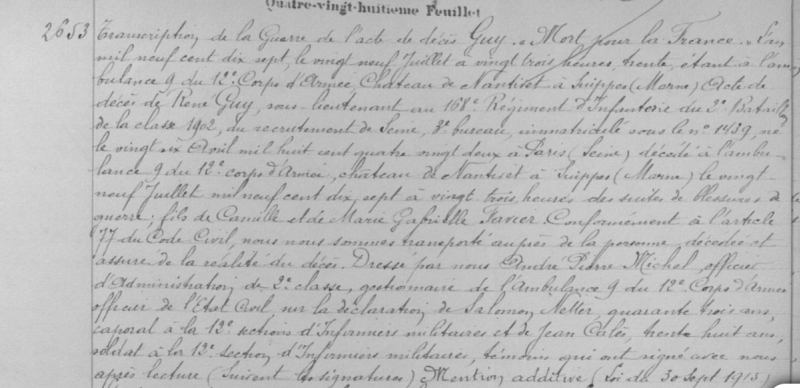 Quatre-vingt-huitième Feuillet
2653 Transcription de la Guerre de l'acte de décès Guy. "Mort pour la France". L'an
mil neuf cent dix sept, le vingt neuf Juillet à vingt trois heures trente, étant à l'am-
bulance 9 du 12e Corps d'Armée, Château de Nantivet à Suippes (Marne) Acte de
décès de René Guy, sous-lieutenant au 168e Régiment d'Infanterie du 2e Bataillon
de la classe 1902, du recrutement de Seine, 3e bureau, immatriculé sous le no 1439, né
le vingt six Avril mil huit cent quatre vingt deux à Paris (Seine) décédé à l'ambu-
lance 9 du 12e corps d'Armée, château de Nantivet à Suippes (Marne) le vingt-
neuf Juillet mil neuf cent dix sept à vingt trois heures des suites de blessures de
guerre; fils de Camille et de Marie Gabrielle Favier Conformément à l'article
77 du Code Civil, nous nous sommes transporté auprès de la personne décédée et
assuré de la réalité du décès. Dressé par nous André Pierre Michel, officier
d'Administration de 2e classe, gestionnaire de l'Ambulance 9 du 12e Corps d'Armée
officier de l'Etat Civil, sur la déclaration de Salomon Netter, quarante trois ans,
caporal à la 12e section d'Infirmiers militaires et de Jean Calès, trente huit ans,
soldat à la 12e section d'Infirmiers militaires, témoins qui ont signé avec nous
après lecture (Suivent les signatures) Mention additive (Loi du 30 Sept 1915)